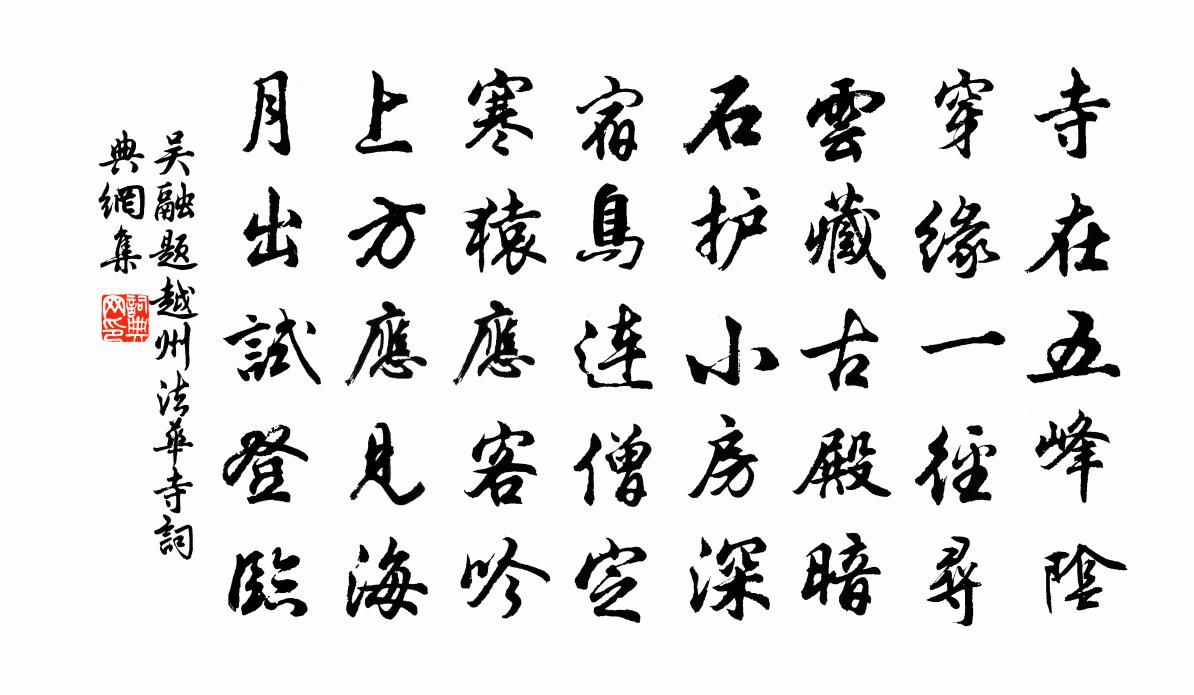 寺在五峰陰
穿緣一徑尋
雲藏古殿暗
石护小房深
宿鳥連僧定
寒猿應客吟
上方應見海
月出試登臨
吴融题越州法華寺詞
典網集
詞典
网印